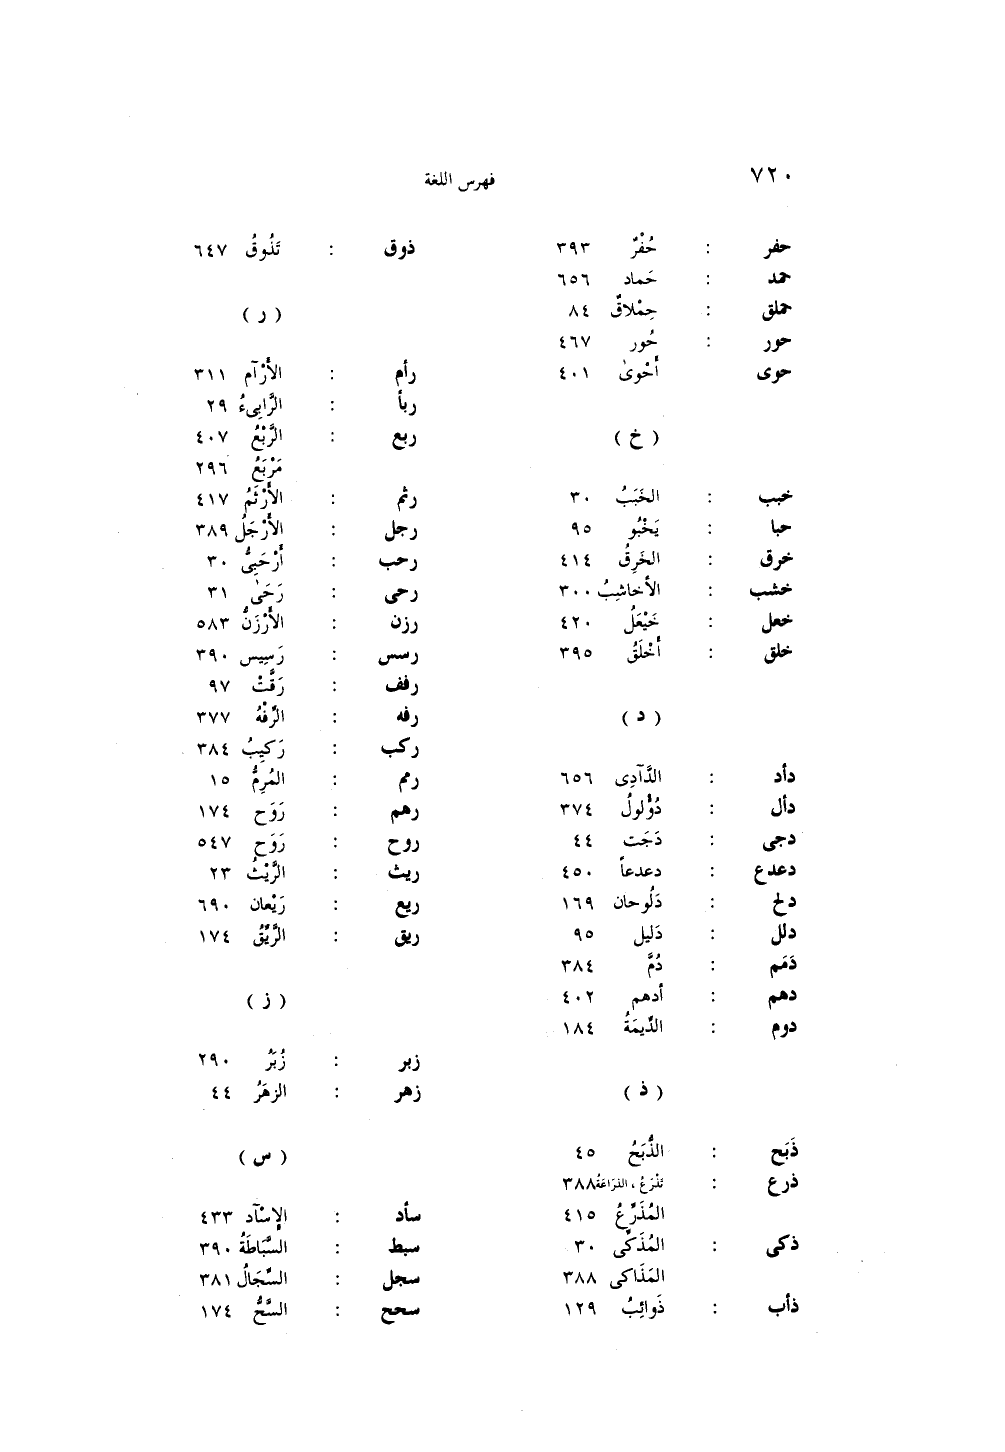 ٧٢٠
فهرس اللغة
حفر : حُفْرٌ ٣٩٣
حمد : حَماد ٦٥٦
حملق : حِمْلاقٌ ٨٤
حور : حُور ٤٦٧
حوى : أَحْوىٰ ٤٠١
( خ )
خبب : الخَبَبُ ٣٠
حبا : يَخْبُو ٩٥
خرق : الخَرِقُ ٤١٤
خشب : الأخاشِبُ ٣٠٠
خعل : خَيْعَلُ ٤٢٠
خلق : أخْلَقُ ٣٩٥
( د )
دأد : الدَّآدِى ٦٥٦
دأل : دُؤْلولُ ٣٧٤
دجى : دَجَت ٤٤
دعدع : دعدعاً ٤٥٠
دلح : دَلُوحان ١٦٩
دلل : دَليل ٩٥
دَمَم : دُمَّ ٣٨٤
دهم : أدهم ٤٠٢
دوم : الدِّيمَةُ ١٨٤
( ذ )
ذَبَح : الذُّبَحُ ٤٥
ذرع : تذْرَعُ ، الذرَاعَةُ ٣٨٨
المُذَرِّعُ ٤١٥
ذكى : المُذَكِّى ٣٠
المَذَاكى ٣٨٨
ذأب : ذَوائِبُ ١٢٩
ذوق : تَذُوقُ ٦٤٧
( ر )
رأم : الأَرْآم ٣١١
ربأ : الرَّابِىءُ ٢٩
ربع : الرَّبْعُ ٤٠٧
مَرْبَعُ ٢٩٦
رثم : الأَرْثَمُ ٤١٧
رجل : الأَرْجَلُ ٣٨٩
رحب : أَرْحَبِىُّ ٣٠
رحى : رَحَىٰ ٣١
رزن : الأَرْزَنُ ٥٨٣
رسس : رَسِيس ٣٩٠
رفف : رَفَّتْ ٩٧
رفه : الرِّفْهُ ٣٧٧
ركب : رَكِيبُ ٣٨٤
رمم : المُرِمُّ ١٥
رهم : رَوَح ١٧٤
روح : رَوَح ٥٤٧
ريث : الرَّيْثُ ٢٣
ريع : رَيْعان ٦٩٠
ريق : الرَّيِّقُ ١٧٤
( ز )
زبر : زُبَرُ ٢٩٠
زهر : الزهَرُ ٤٤
( س )
سأد : الإسْآد ٤٣٣
سبط : السَّبَاطَةُ ٣٩٠
سجل : السِّجَالُ ٣٨١
سحح : السَّحُّ ١٧٤